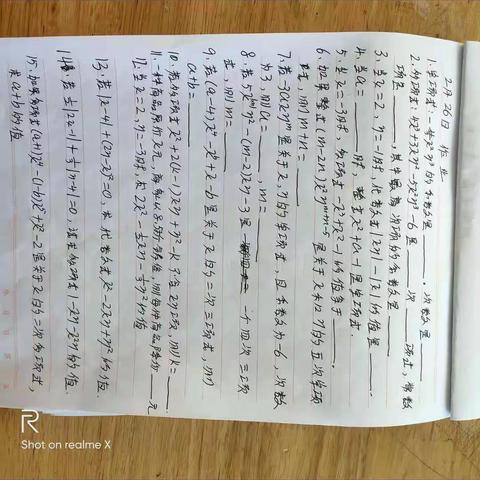 2月26日 作业
1.单项式-x²y³的系数是____,次数是____.
2.多项式4x²+3x²y²-5x²y³-6是____次____项式,常数
项是____,其中最高次项的系数是____.
3.当x=2,y=-1时,代数式|xy|-|x|的值是____.
4.当a=____时,整式x²+a-1是单项式.
5.当x=-3时,多项式-x³+x²-1的值等于____.
6.如果整式(m-2n)x²y^(m+n-5)是关于x和y的五次单项
式,则m+n=____
7.若-3ax²y^m是关于x,y的单项式,且系数为-6,次数
为3,则a=____,m=____
8.若5x²y^|m|-(m-2)xy-3是一个四次三项
式,则m=____
9.若(a-4)x³-x²+x-b是关于x的二次三项式,则
a+b=____
10.若多项式x²+2(k-1)xy+y²-k不含xy项,则k=____
11.一件商品原价x元,商场以8折价格出售,则每件商品降价____元
12.当x=2,y=-3时,求2x²-½xy-⅓y²的值
13.若|x-4|+(2y-x)²=0,求代数式x²-2xy+y²的值.
14.若½|2x-1|+⅓|y-4|=0,试求多项式1-xy-x²y的值.
15.如果多项式(a+1)x⁴-(1-b)x⁵+x²-2是关于x的二次多项式,
求a+b的值
R
Shot on realme X